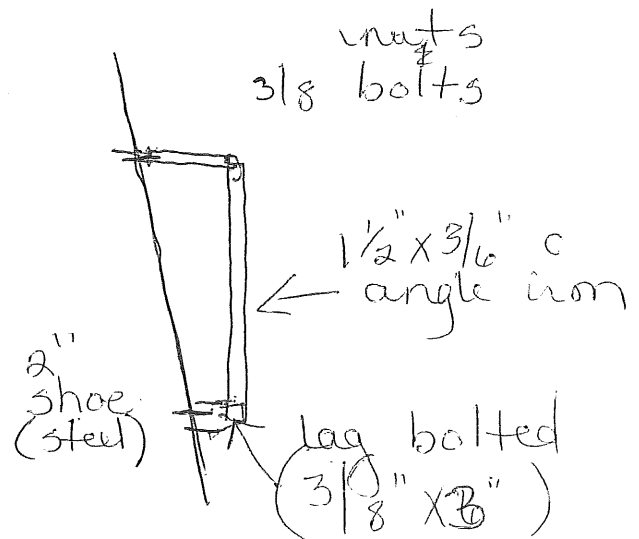 nuts
&
3/8 bolts
1½" x 3/6" c
angle iron
2"
shoe
(steel)
lag bolted
(3/8" x 6")